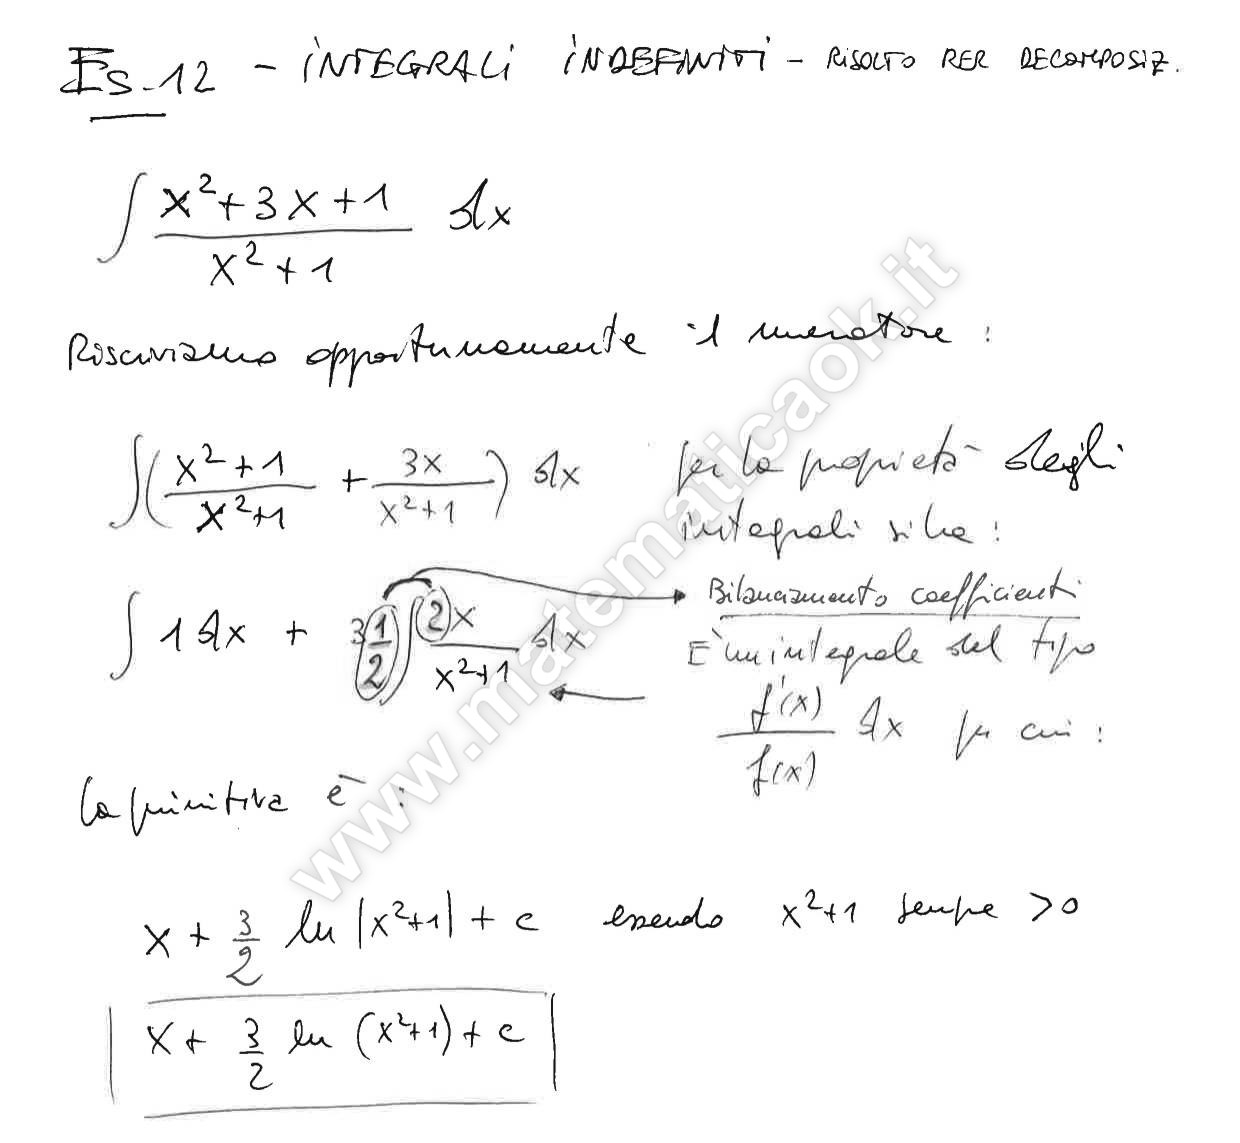 Es. 12 - INTEGRALI INDEFINITI - RISOLTO PER DECOMPOSIZ.
∫ (x²+3x+1)/(x²+1) dx
Riscriviamo opportunamente il numeratore :
∫( (x²+1)/(x²+1) + 3x/(x²+1) ) dx per la proprietà degli
integrali si ha :
∫ 1 dx + 3 1/2 ∫ 2x/(x²+1) dx → Bilanciamento coefficienti
E' un integrale del tipo
f'(x)/f(x) dx per cui :
La primitiva è :
x + 3/2 ln |x²+1| + c essendo x²+1 sempre >0
x + 3/2 ln (x²+1) + c
www.matematicaok.it